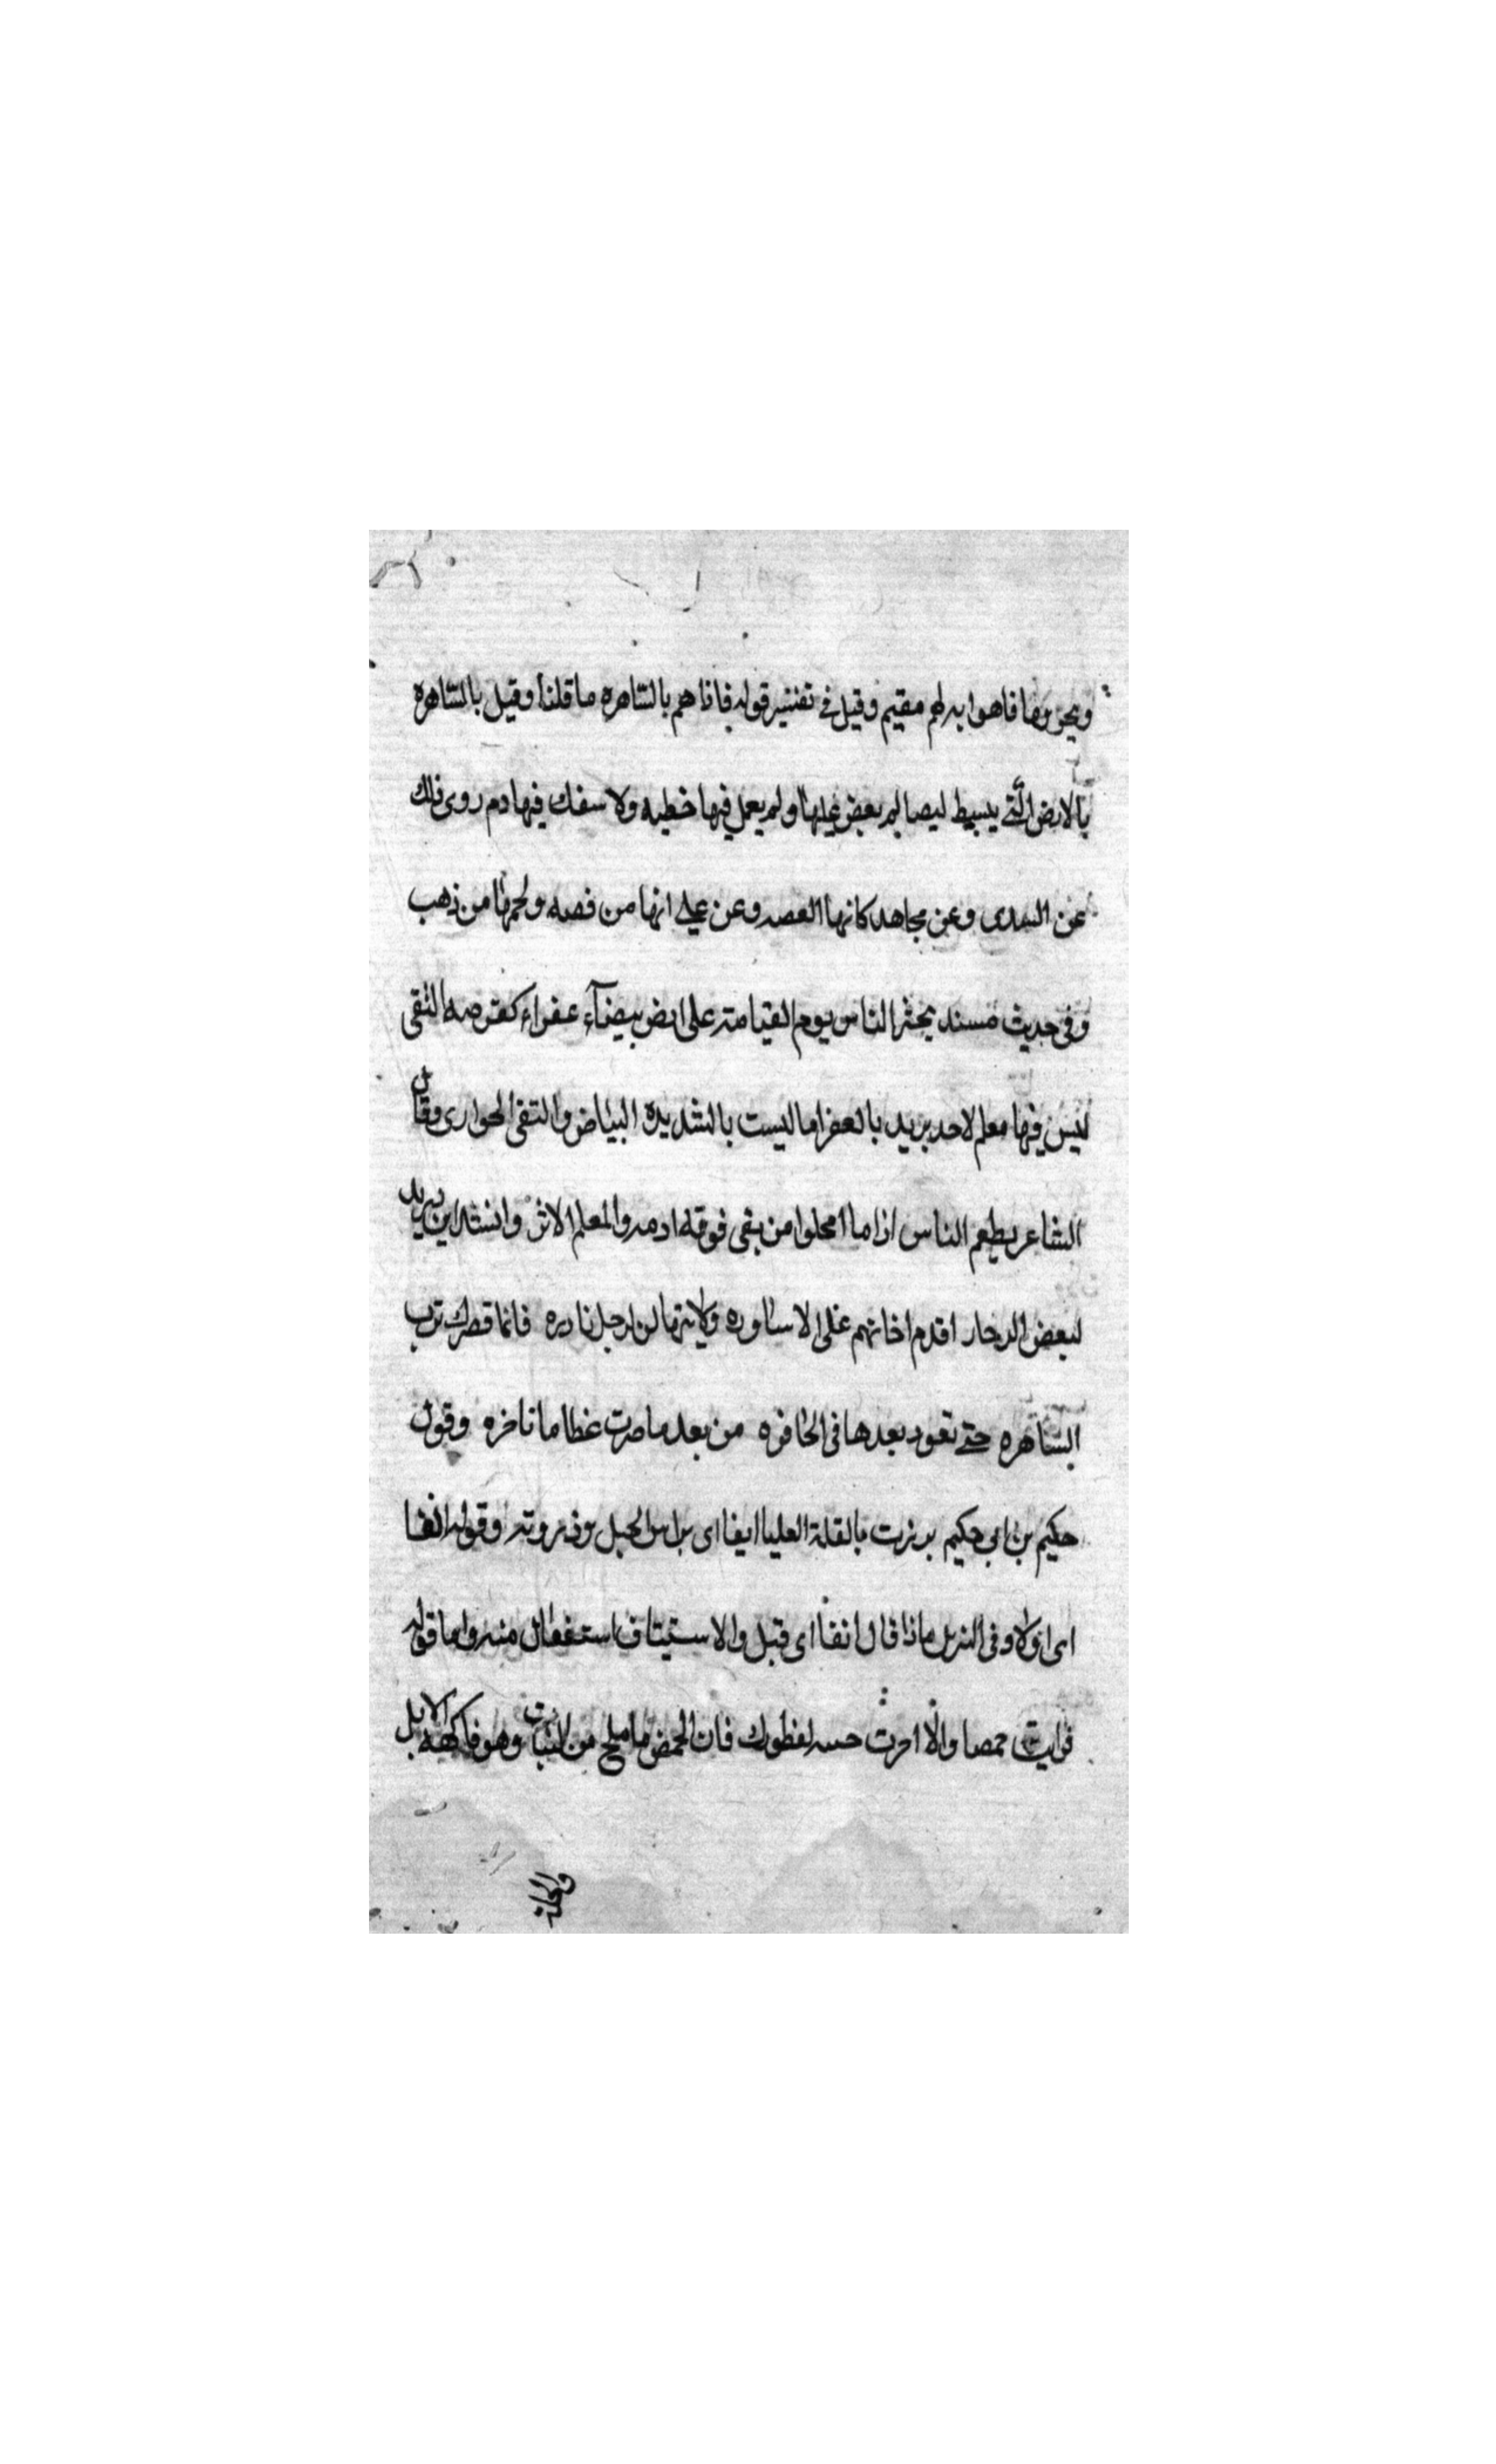 وبحر وما فاهوا به لهم مقيم وقيل في تفسير قوله فاذا هم بالساهرة ما قلنا وقيل بالساهرة
بالارض التي يبسط ليصا لم بعض عليها ولم يعمل فيها خطيه ولا سفك فيها دم روى ذلك
عن السدى وعن مجاهد كانها الفصه وعن على انها من فصه ولحمها من ذهب
وفى حديث مسند يحشر الناس يوم القيامة على ارض بيضآء عفراء كقرصه النقى
ليس فيها معلم لاحد يريد بالعفرا ما ليست بالشديدة البياض والنقى الحوارى وقال
الشاعر يطعم الناس اذا ما امحلوا من نقى فوقه ادمه والمعلم الاثر وانشد ابن دريد
لبعض الرجاز اقدم اخانهم على الاساوره ولا يرهبك رجل نادره فانما قصرك ترب
الساهره حتى تعود بعدها فى الحافره من بعد ما صرت عظاما ناخره وقول
حكيم بن ابى حكيم برزت بالقلة العليا ايفا اى براس الجبل وذروته وقوله انفا
اى اولا وفى التنزيل ماذا قال انفا اى قبل والاستيناف استفعال منه واما قوله
فرايت حمصا والا احرت حسه لفظورك فان الحمض ما ملح من النبات وهو فاكهة الابل